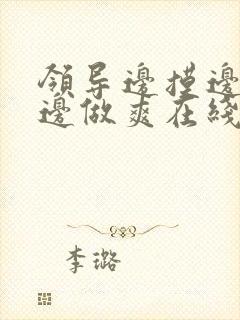 领导邊摸邊
邊做爽在綫
李璐